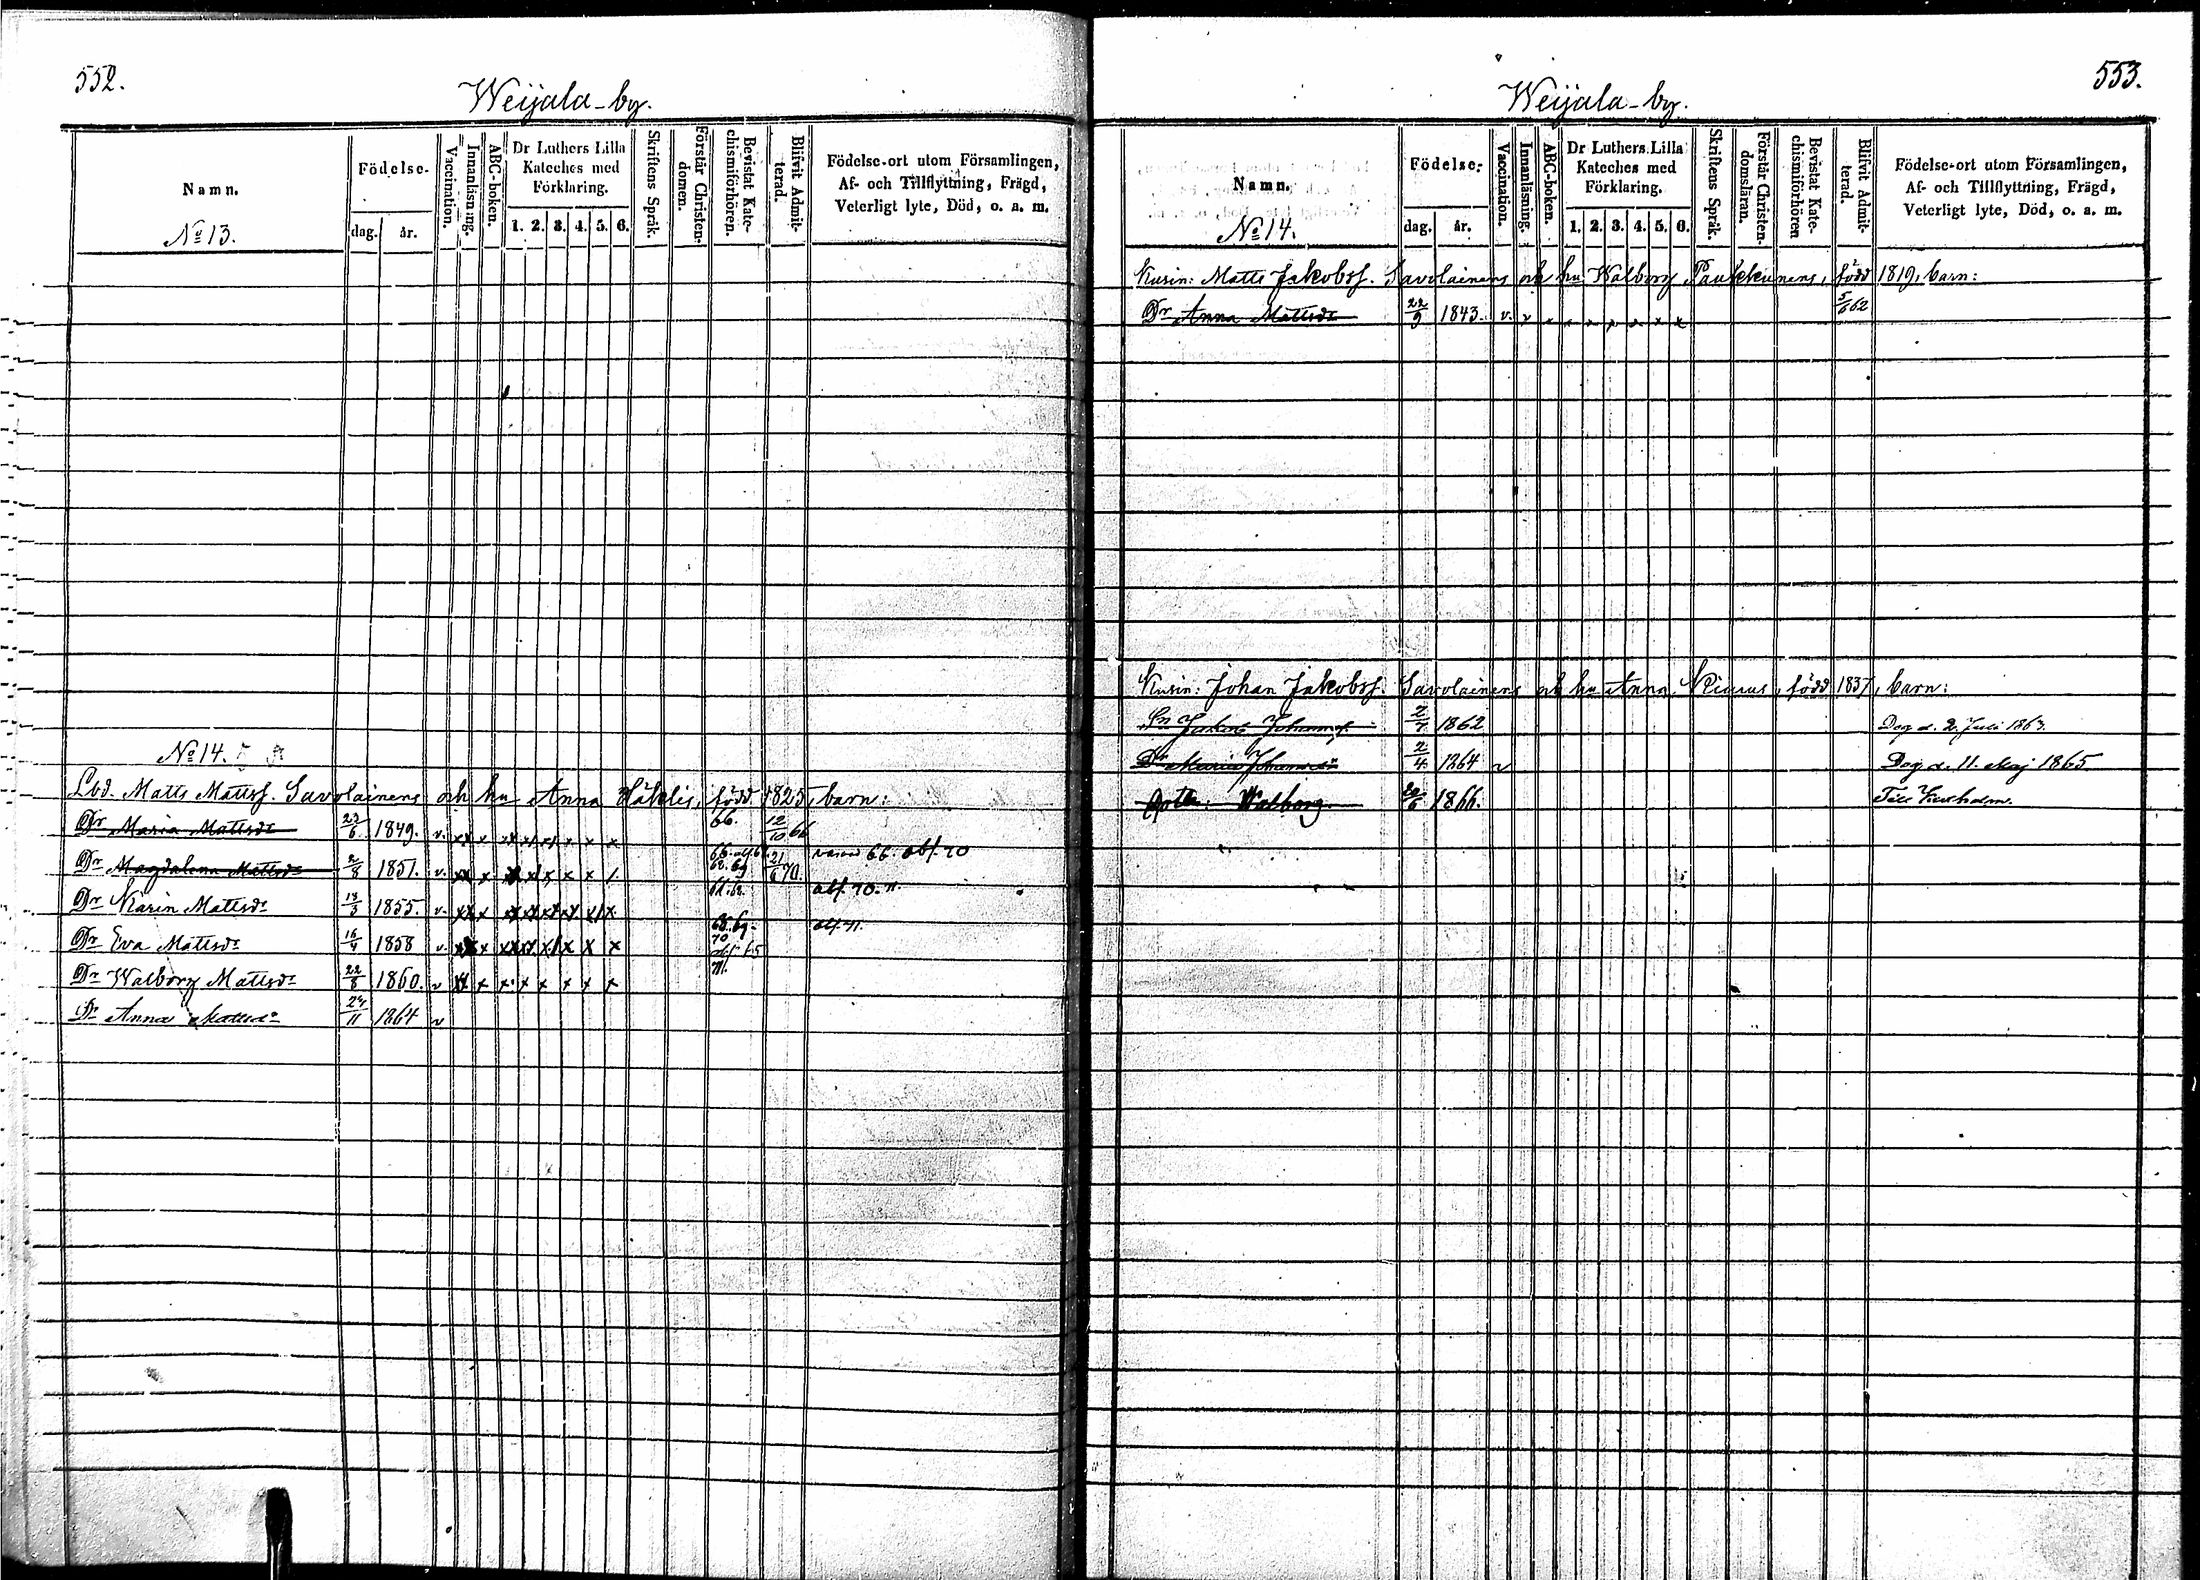 552.
Weijala-by.
Namn.
No 13.
Födelse-
dag. år.
Vaccination.
Innanläsning.
ABC-boken.
Dr Luthers Lilla
Kateches med
Förklaring.
1. 2. 3. 4. 5. 6.
Skriftens Språk.
Förstår Christen-
domen.
Bevistat Kate-
chismiförhören.
Blifvit Admit-
terad.
Födelse-ort utom Församlingen,
Af- och Tillflyttning, Frägd,
Veterligt lyte, Död, o. a. m.
No 14.
Lbd. Matts Mattss. Savolainens och hu Anna född 1825, barn:
Dr Maria Mattsdr 23/6 1849. v. x x x x x x 66. 12/10 66
66. 66. abs. 70
Dr Magdalena Mattsdr 2/8 1851. v. x x x x x x 68. 69 21/6 70.
abs. 70. 71.
Dr Karin Mattsdr 13/3 1855. v. x x x x x x
68. 69. abs. 71.
Dr Eva Mattsdr 16/4 1858 v. x x x x x x 70
71.
Dr Walborg Mattsdr 22/8 1860. v x x x x x x x x
Dr Anna Mattsdr 24/11 1864 v
553.
Weijala-by.
Namn.
No 14.
Födelse-
dag. år.
Vaccination.
Innanläsning.
ABC-boken.
Dr Luthers Lilla
Kateches med
Förklaring.
1. 2. 3. 4. 5. 6.
Skriftens Språk.
Förstår Christen-
domsläran.
Bevistat Kate-
chismiförhören
Blifvit Admit-
terad.
Födelse-ort utom Församlingen,
Af- och Tillflyttning, Frägd,
Veterligt lyte, Död, o. a. m.
Kusin: Matts Jakobss. Savolainens och hu Walborg Paukkunens, född 1819, barn:
Dr Anna Mattsdr 22/9 1843. v. v x x x x x x x 5/6 62
Kusin: Johan Jakobss. Savolainens och hu Anna född 1837, barn:
Sn Jakob Johanss. 2/7 1862 Dog d. 2. Juli 1863.
Dr Maria Johansdr 2/4 1864 v Dog d. 11. Maj 1865.
Walborg 20/6 1866. Till Kexholm.